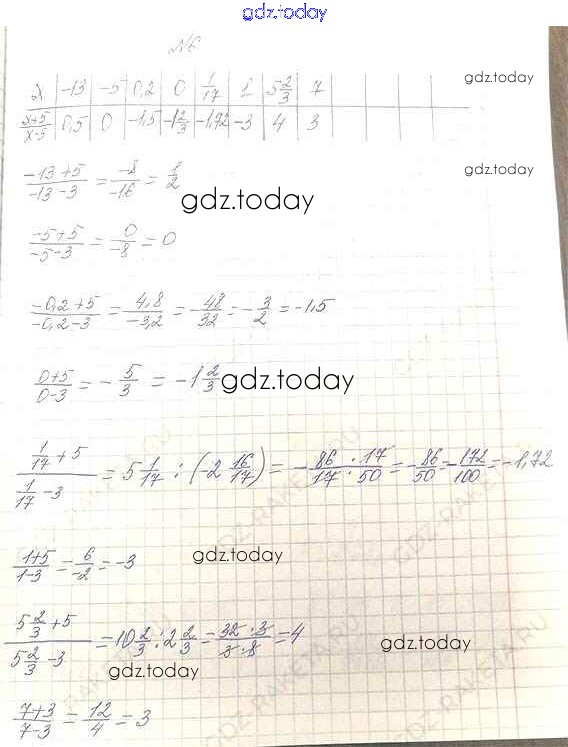 gdz.today
№6
gdz.today
x | -13 | -5 | 0,2 | 0 | 1/17 | 1 | 5 2/3 | 7
x+5/x-5 | 0,5 | 0 | -1,5 | -1 2/3 | -1,72 | -3 | 4 | 3
-13+5/-13-3 = -8/-16 = 1/2
gdz.today
gdz.today
-5+5/-5-3 = 0/-8 = 0
-0,2+5/-0,2-3 = 4,8/-3,2 = -48/32 = -3/2 = -1,5
0+5/0-3 = -5/3 = -1 2/3
gdz.today
1/17+5/1/17-3 = 5 1/17 : (-2 16/17) = -86·17/17·50 = -86/50 = -172/100 = -1,72
GDZ-RAKETA.RU
1+5/1-3 = 6/-2 = -3
gdz.today
5 2/3+5/5 2/3-3 = 10 2/3 : 2 2/3 = 32·3/3·8 = 4
gdz.today
gdz.today
GDZ-RAKETA.RU
7+3/7-3 = 12/4 = 3
gdz.today